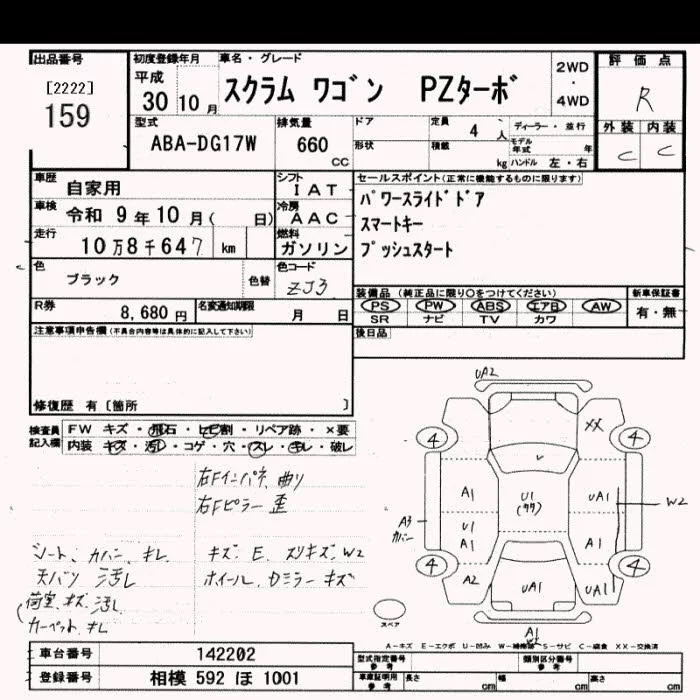 出品番号
[2222]
159
初度登録年月
平成
30 10 月
車名・グレード
スクラム ワゴン PZターボ
2WD
4WD
評価点
R
外装 内装
C C
型式
ABA-DG17W
排気量
660
CC
ドア
形状
定員 4 人
積載 kg
ディーラー・並行
モデル年式 年
ハンドル 左・右
車歴 自家用
シフト
IAT
車検 令和 9 年 10 月( 日)
冷房
AAC
走行 10万8千647 km
燃料
ガソリン
セールスポイント(正常に機能するものに限ります)
パワースライドドア
スマートキー
プッシュスタート
色 ブラック
色替
色コード
ZJ3
R券 8,680 円
名変通知期限 月 日
装備品(純正品に限り○をつけてください)
PS PW ABS エアB AW
SR ナビ TV カワ
新車保証書
有・無
後日品
注意事項申告欄(不具合内容等は具体的に記入して下さい)
修復歴 有〔箇所 〕
検査員記入欄
FW キズ・飛石・ヒビ割・リペア跡・×要
内装 キズ・汚れ・コゲ・穴・スレ・キレ・破レ
右Fインパネ、曲り
右Fピラー 歪
シート、カバー、キレ
キズ、E、スリキズ、W2
天バリ 汚レ
ホイール、カミラー キズ
荷室、キズ、汚レ
カーペット、キレ
UA2
XX
4 4
A1
U1
(タタ)
UA1
W2
A3
カバー
U1
A1
A1
4 4
A2
UA1
UA1
A1
W2
スペア
A−キズ E−エクボ U−凹み W−補修跡 S−サビ C−腐食 XX−交換済
車台番号 142202
登録番号 相模 592 ほ 1001
型式指定番号
参考
類別区分番号
参考
車庫証明用
参考
長さ cm 幅 cm 高さ cm